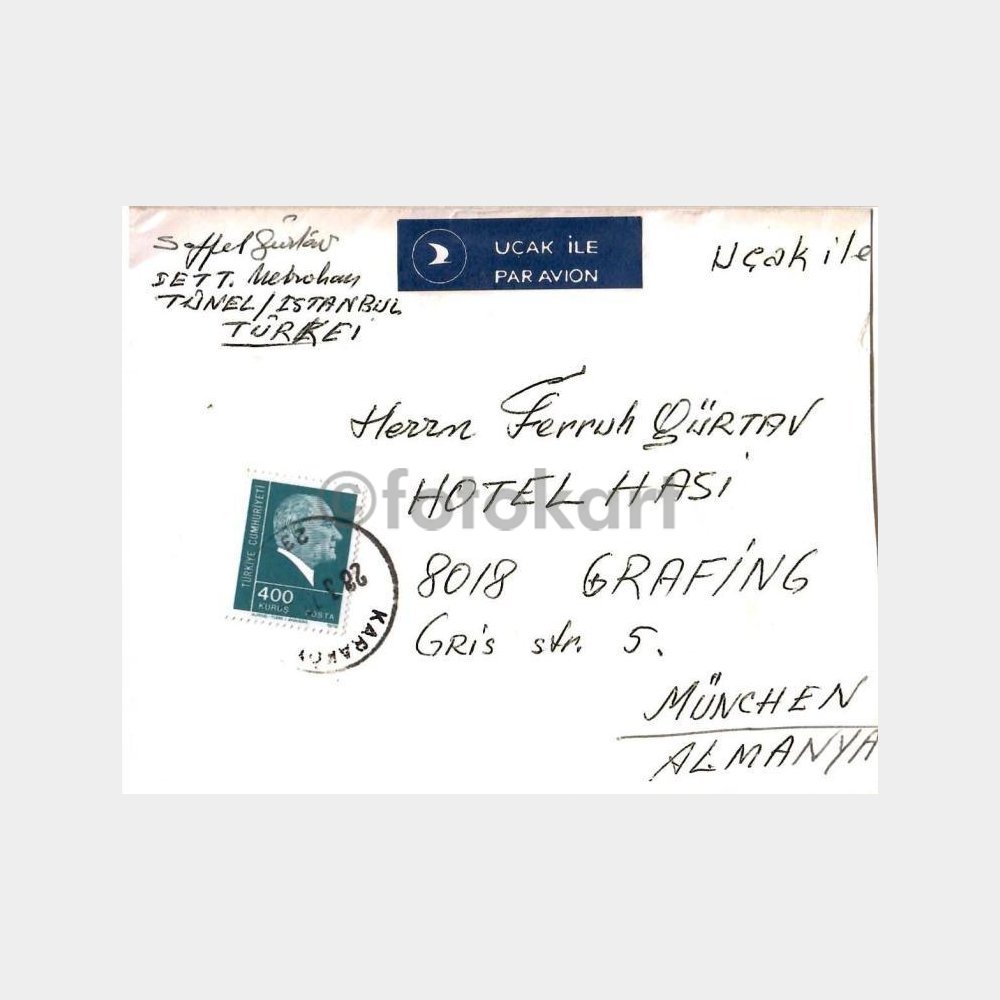 Gürtav
İETT. Metrohan
TÜNEL/İSTANBUL
TÜRKEİ
UÇAK İLE
PAR AVION
Uçak ile
Herrn Ferruh GÜRTAV
HOTEL HASİ
8018 GRAFİNG
Gris str. 5.
MÜNCHEN
ALMANYA
TÜRKİYE CUMHURİYETİ
400
KURUŞ POSTA
23
28.3.
KARAKÖY
©fotokart